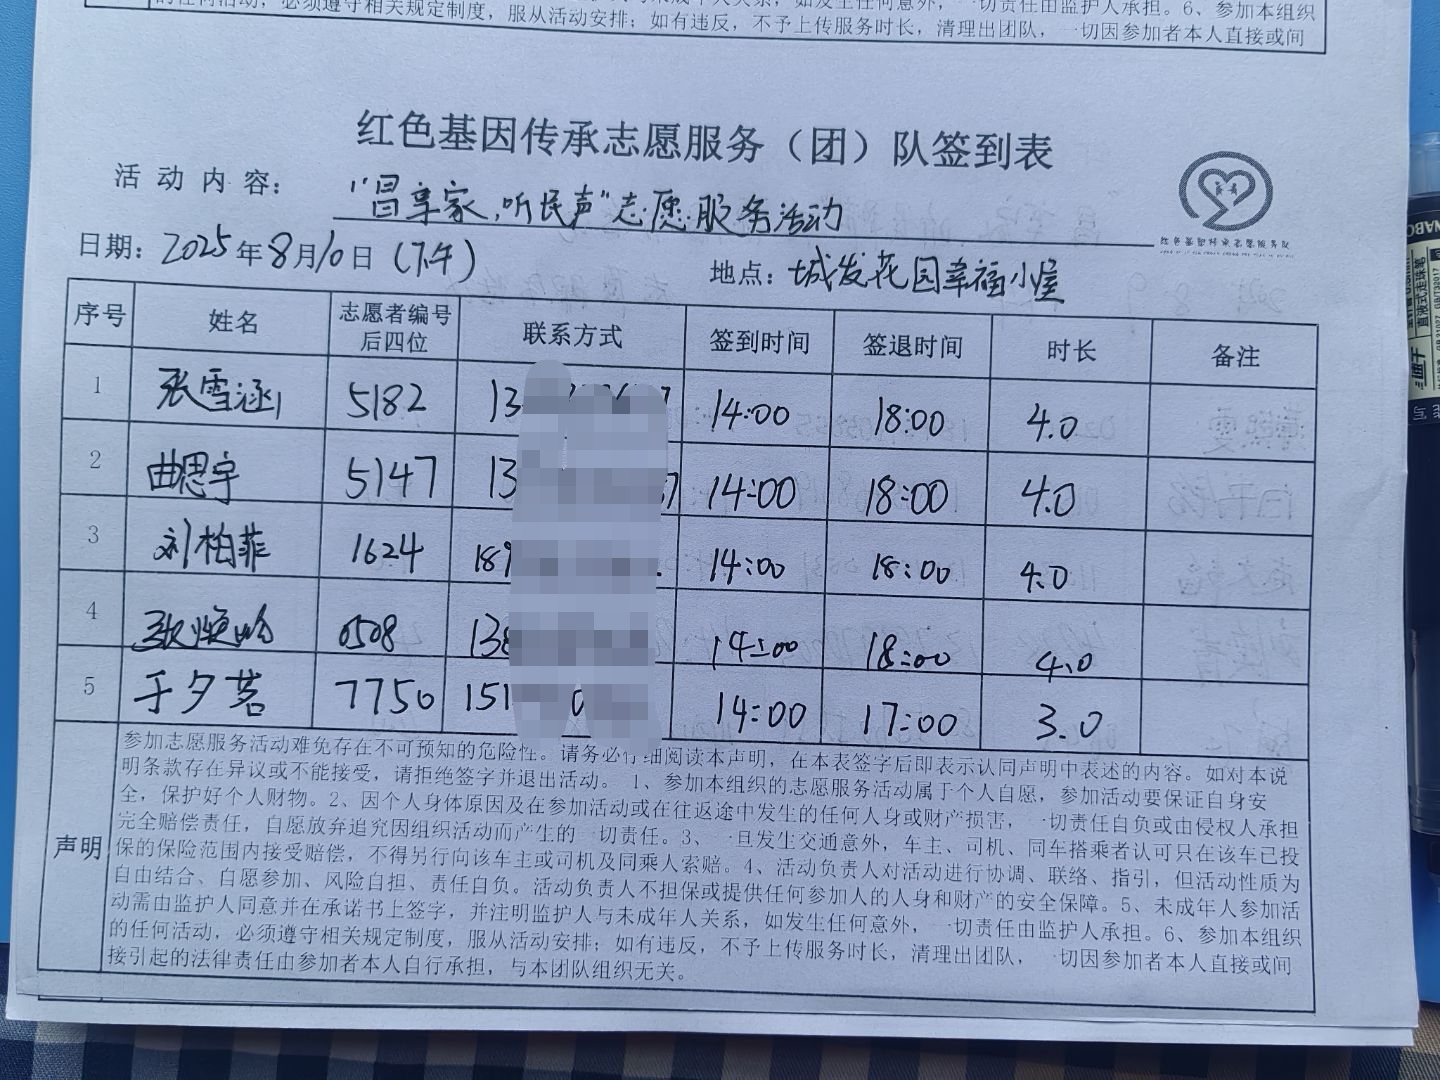 的任何活动，必须遵守相关规定制度，服从活动安排；如有违反，不予上传服务时长，清理出团队，一切因参加者本人直接或间
红色基因传承志愿服务（团）队签到表
活动内容： “昌享家，听民声”志愿服务活动
日期：2025年8月10日（下午）
地点：城发花园幸福小屋
红色基因传承志愿服务队
序号 姓名 志愿者编号后四位 联系方式 签到时间 签退时间 时长 备注
1 张雪涵 5182 13 7 14:00 18:00 4.0
2 曲思宇 5147 13 7 14:00 18:00 4.0
3 刘柏菲 1624 189 14:00 18:00 4.0
4 0508 138 14:00 18:00 4.0
5 于夕茗 7750 151 0 14:00 17:00 3.0
声明
参加志愿服务活动难免存在不可预知的危险性。请务必仔细阅读本声明，在本表签字后即表示认同声明中表述的内容。如对本说
明条款存在异议或不能接受，请拒绝签字并退出活动。1、参加本组织的志愿服务活动属于个人自愿，参加活动要保证自身安
全，保护好个人财物。2、因个人身体原因及在参加活动或在往返途中发生的任何人身或财产损害，一切责任自负或由侵权人承担
完全赔偿责任，自愿放弃追究因组织活动而产生的一切责任。3、一旦发生交通意外，车主、司机、同车搭乘者认可只在该车已投
保的保险范围内接受赔偿，不得另行向该车主或司机及同乘人索赔。4、活动负责人对活动进行协调、联络、指引，但活动性质为
自由结合、自愿参加、风险自担、责任自负。活动负责人不担保或提供任何参加人的人身和财产的安全保障。5、未成年人参加活
动需由监护人同意并在承诺书上签字，并注明监护人与未成年人关系，如发生任何意外，一切责任由监护人承担。6、参加本组织
的任何活动，必须遵守相关规定制度，服从活动安排；如有违反，不予上传服务时长，清理出团队，一切因参加者本人直接或间
接引起的法律责任由参加者本人自行承担，与本团队组织无关。
直液式走珠笔